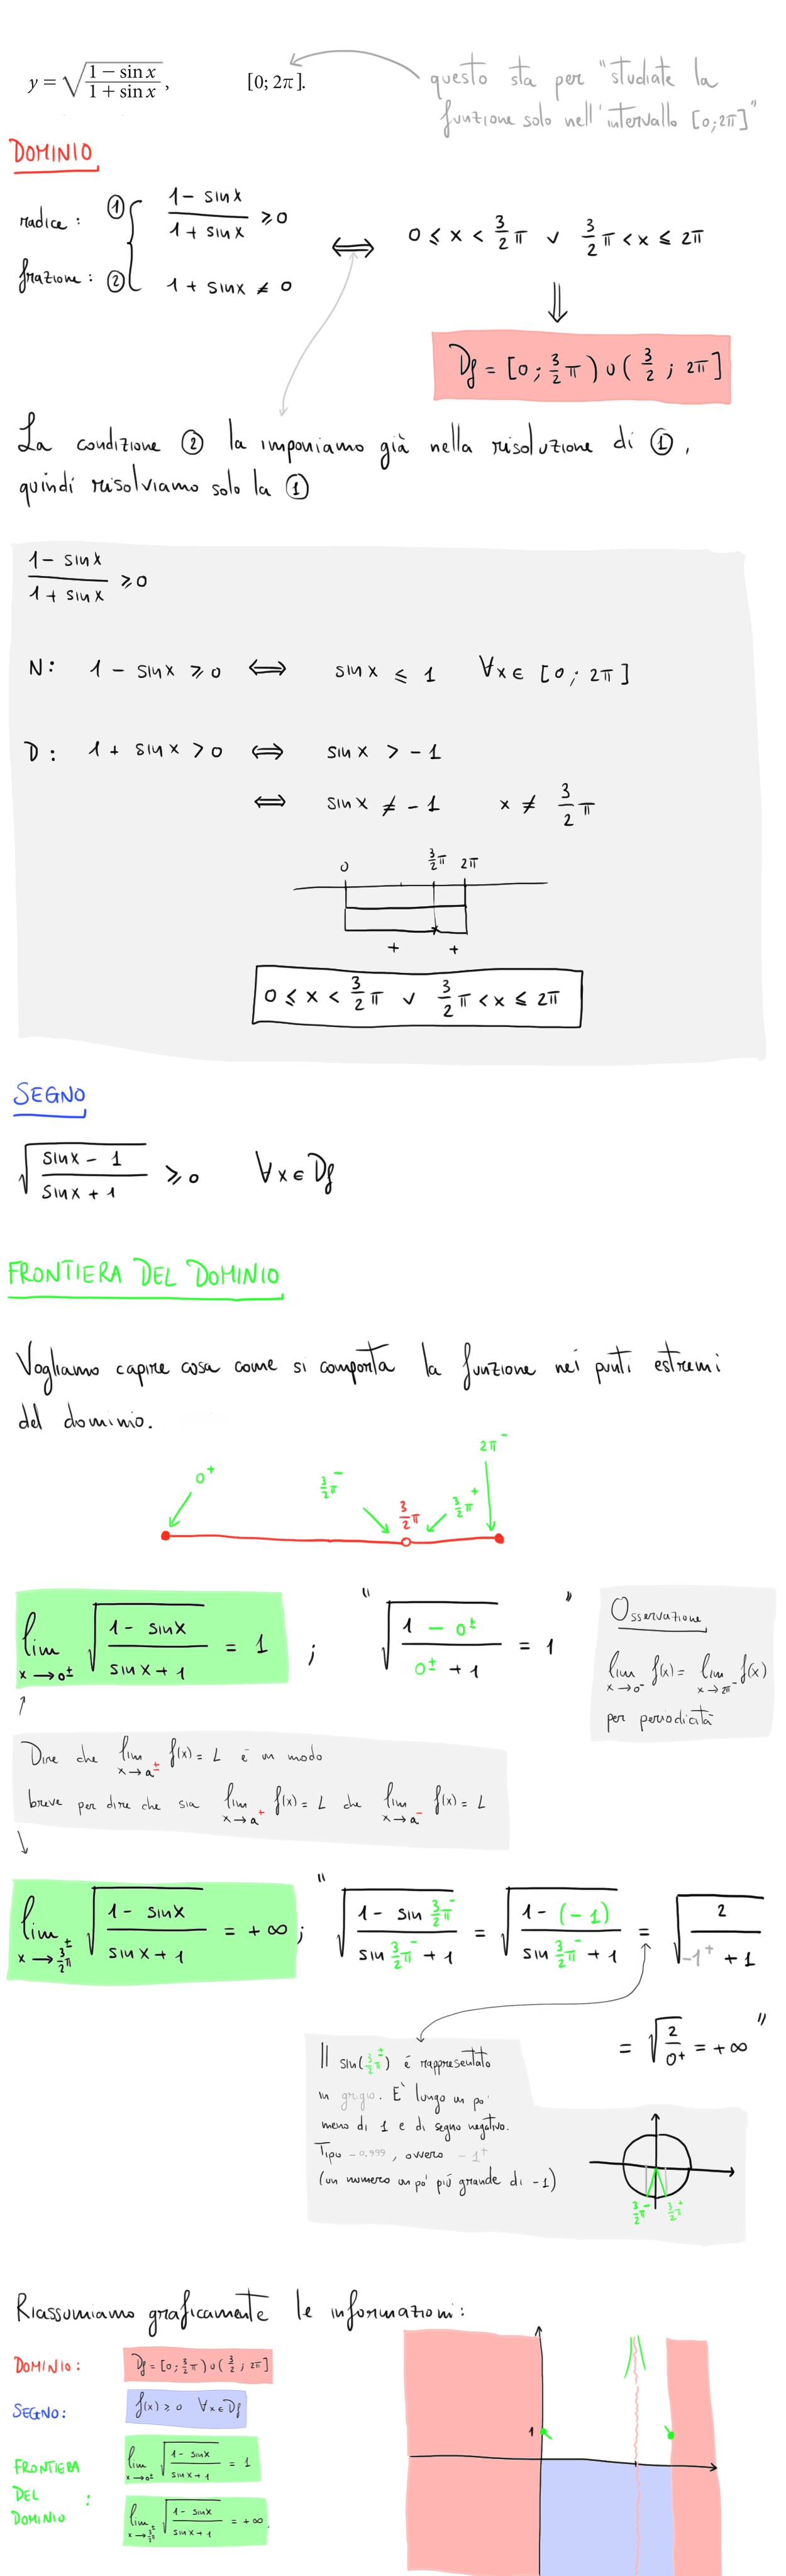 y = √((1 − sin x)/(1 + sin x)), [0; 2π].
questo sta per "studiate la
funzione solo nell'intervallo [0;2π]"
DOMINIO
radice: ① { (1 − sinx)/(1 + sinx) ⩾ 0
frazione: ② { 1 + sinx ≠ 0
⟺ 0 ⩽ x < 3/2 π ∨ 3/2 π < x ⩽ 2π
⇓
Df = [0; 3/2 π) ∪ (3/2 ; 2π]
La condizione ② la imponiamo già nella risoluzione di ①,
quindi risolviamo solo la ①
(1 − sinx)/(1 + sinx) ⩾ 0
N: 1 − sinx ⩾ 0 ⟺ sinx ⩽ 1 ∀x ∈ [0; 2π]
D: 1 + sinx > 0 ⟺ sinx > −1
⟺ sinx ≠ −1 x ≠ 3/2 π
0 3/2 π 2π
+ +
0 ⩽ x < 3/2 π ∨ 3/2 π < x ⩽ 2π
SEGNO
√((sinx − 1)/(sinx + 1)) ⩾ 0 ∀x ∈ Df
FRONTIERA DEL DOMINIO
Vogliamo capire cosa come si comporta la funzione nei punti estremi
del dominio.
0⁺ 3/2 π⁻ 3/2 π 3/2 π⁺ 2π⁻
lim x→0± √((1 − sinx)/(sinx + 1)) = 1 ; "√((1 − 0±)/(0± + 1)) = 1"
Osservazione
lim x→0⁻ f(x) = lim x→2π⁻ f(x)
per periodicità
Dire che lim x→a± f(x) = L è un modo
breve per dire che sia lim x→a⁺ f(x) = L che lim x→a⁻ f(x) = L
lim x→3/2 π± √((1 − sinx)/(sinx + 1)) = +∞ ; "√((1 − sin 3/2 π⁻)/(sin 3/2 π⁻ + 1)) = √((1 − (−1))/(sin 3/2 π⁻ + 1)) = √(2/(−1⁺ + 1))
= √(2/0⁺) = +∞"
Il sin(3/2 π±) é rappresentato
in grigio. È lungo un po'
meno di 1 e di segno negativo.
Tipo −0.999, ovvero −1⁺
(un numero un po' più grande di −1)
3/2 π⁻ 3/2 π⁺
Riassumiamo graficamente le informazioni:
DOMINIO: Df = [0; 3/2 π) ∪ (3/2 ; 2π]
SEGNO: f(x) ⩾ 0 ∀x ∈ Df
FRONTIERA DEL DOMINIO : lim x→0± √((1 − sinx)/(sinx + 1)) = 1
lim x→3/2 π± √((1 − sinx)/(sinx + 1)) = +∞.
1